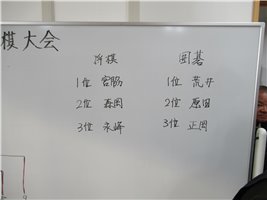 棋大会
将棋
囲碁
1位 宮脇
1位 荒井
2位 森岡
2位 原田
3位
3位 正岡